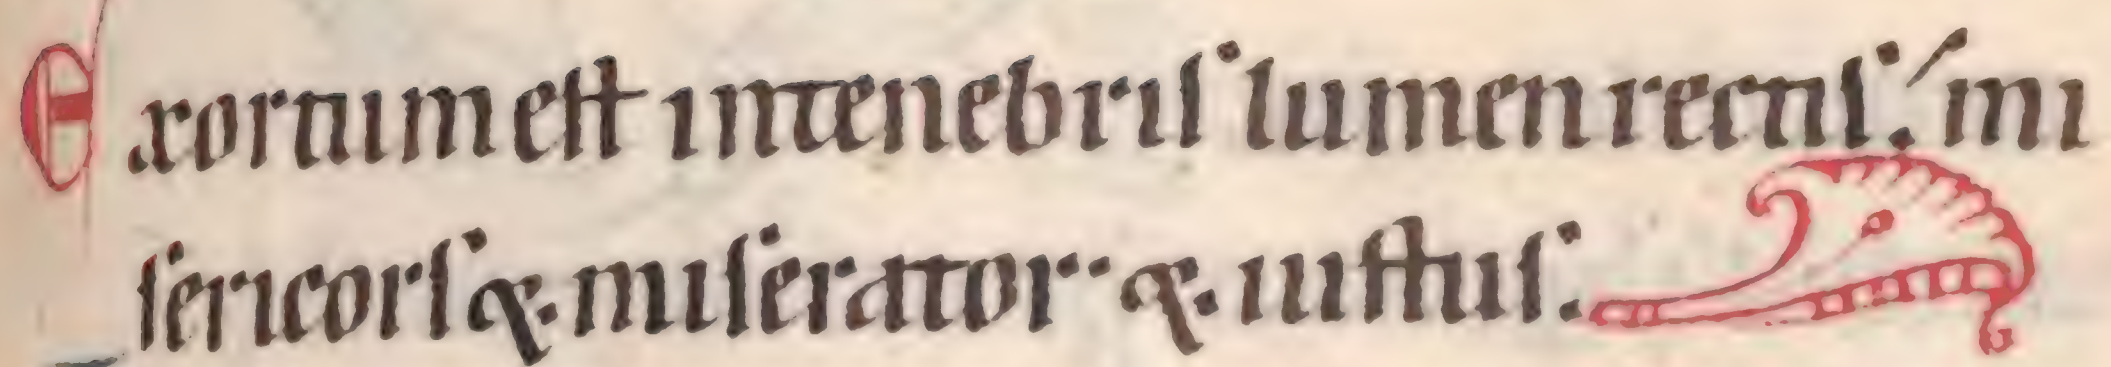 Exortum est intenebris lumen rectis: mi
sericors & miserator & iustus.